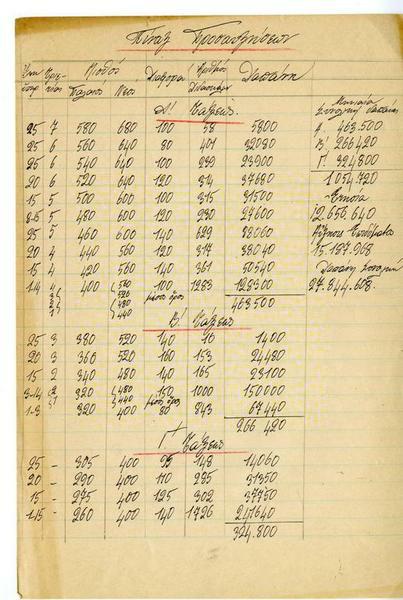 Πίναξ Προσαυξήσεων
Μισθός Διαφορά Αριθμός Δαπάνη
Παλαιός Νέος
Α' Τάξεως
25 7 580 680 100 58 5800
25 6 560 640 80 401 32080
25 6 540 640 100 239 23900
20 6 520 640 120 314 37680
15 5 500 600 100 315 31500
8-15 5 480 600 120 230 27600
25 5 460 600 140 629 88060
20 4 440 560 120 317 38040
15 4 420 560 140 361 50540
1-4 4 400 560 100 1283 128300
3 520 μέσος όρος
2 480
1 440
463500
Β' Τάξεως
25 3 380 520 140 10 1400
20 3 360 520 160 153 24480
15 2 340 480 140 165 23100
3-14 2 320 480 150 1000 150000
1 440 μέσος όρος
1-3 320 400 80 843 67440
266 420
Γ' Τάξεως
25 - 305 400 95 148 14060
20 - 290 400 110 285 31350
15 - 275 400 125 302 37750
1-15 - 260 400 140 1726 241640
324.800
Μηνιαία
συνολική δαπάνη
Α'. 463.500
Β' 266420
Γ'. 324800
1054.720
Ετησία
12.656.640
15.187.968
Δαπάνη συνολική
27.844.608.